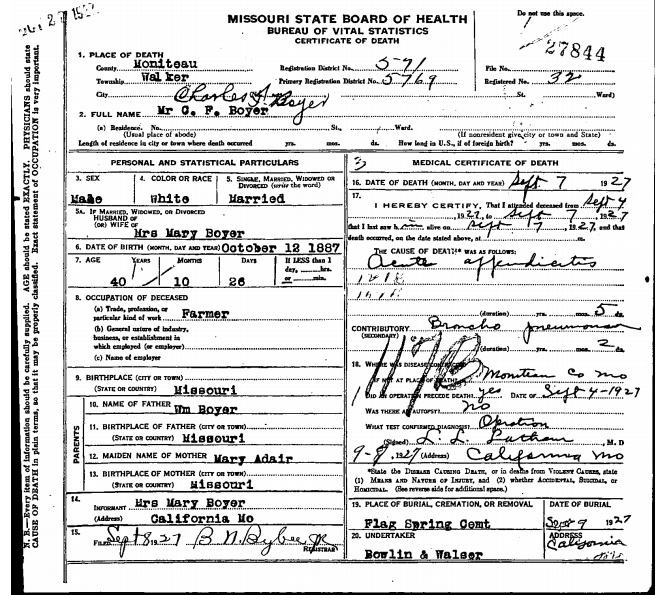 MISSOURI STATE BOARD OF HEALTH
BUREAU OF VITAL STATISTICS
CERTIFICATE OF DEATH
Do not use this space.
27844
1. PLACE OF DEATH
County Moniteau Registration District No. 571 File No.
Township Walker Primary Registration District No. 5769 Registered No. 32
City St. Ward)
Charles F. Boyer
2. FULL NAME Mr C. F. Boyer
(a) Residence. No. St., Ward.
(Usual place of abode) (If nonresident give city or town and State)
Length of residence in city or town where death occurred yrs. mos. ds. How long in U.S., if of foreign birth? yrs. mos. ds.
PERSONAL AND STATISTICAL PARTICULARS
3. SEX 4. COLOR OR RACE 5. SINGLE, MARRIED, WIDOWED OR DIVORCED (write the word)
Male White Married
5A. IF MARRIED, WIDOWED, OR DIVORCED
HUSBAND OF
(OR) WIFE OF
Mrs Mary Boyer
6. DATE OF BIRTH (MONTH, DAY AND YEAR) October 12 1887
7. AGE YEARS MONTHS DAYS If LESS than 1 day, hrs. or min.
40 10 26
8. OCCUPATION OF DECEASED
(a) Trade, profession, or
particular kind of work Farmer
(b) General nature of industry,
business, or establishment in
which employed (or employer)
(c) Name of employer
9. BIRTHPLACE (CITY OR TOWN)
(STATE OR COUNTRY) Missouri
PARENTS
10. NAME OF FATHER Wm Boyer
11. BIRTHPLACE OF FATHER (CITY OR TOWN)
(STATE OR COUNTRY) Missouri
12. MAIDEN NAME OF MOTHER Mary Adair
13. BIRTHPLACE OF MOTHER (CITY OR TOWN)
(STATE OR COUNTRY) Missouri
14.
INFORMANT Mrs Mary Boyer
(Address) California Mo
15.
FILED Sept 8 1927 B N Bybee Jr
REGISTRAR
3 MEDICAL CERTIFICATE OF DEATH
16. DATE OF DEATH (MONTH, DAY AND YEAR) Sept 7 1927
17.
I HEREBY CERTIFY, That I attended deceased from Sept 4
1927, to Sept 7 1927
that I last saw h alive on Sept 7 1927, and that
death occurred, on the date stated above, at m.
THE CAUSE OF DEATH* WAS AS FOLLOWS:
Acute appendicitis
(duration) yrs. mos. 5 ds.
CONTRIBUTORY Broncho pneumonia
(SECONDARY)
(duration) yrs. mos. 2 ds.
18. WHERE WAS DISEASE CONTRACTED
IF NOT AT PLACE OF DEATH? Moniteau Co Mo
DID AN OPERATION PRECEDE DEATH? yes DATE OF Sept 4-1927
WAS THERE AN AUTOPSY? no
WHAT TEST CONFIRMED DIAGNOSIS? Operation
(Signed) L. L. Latham, M. D
9-8, 1927 (Address) California Mo
*State the DISEASE CAUSING DEATH, or in deaths from VIOLENT CAUSES, state
(1) MEANS AND NATURE OF INJURY, and (2) whether ACCIDENTAL, SUICIDAL, or
HOMICIDAL. (See reverse side for additional space.)
19. PLACE OF BURIAL, CREMATION, OR REMOVAL DATE OF BURIAL
Flag Spring Cemt Sept 9 1927
20. UNDERTAKER ADDRESS
Bowlin & Walser California Mo
N. B.—Every item of information should be carefully supplied. AGE should be stated EXACTLY. PHYSICIANS should state
CAUSE OF DEATH in plain terms, so that it may be properly classified. Exact statement of OCCUPATION is very important.